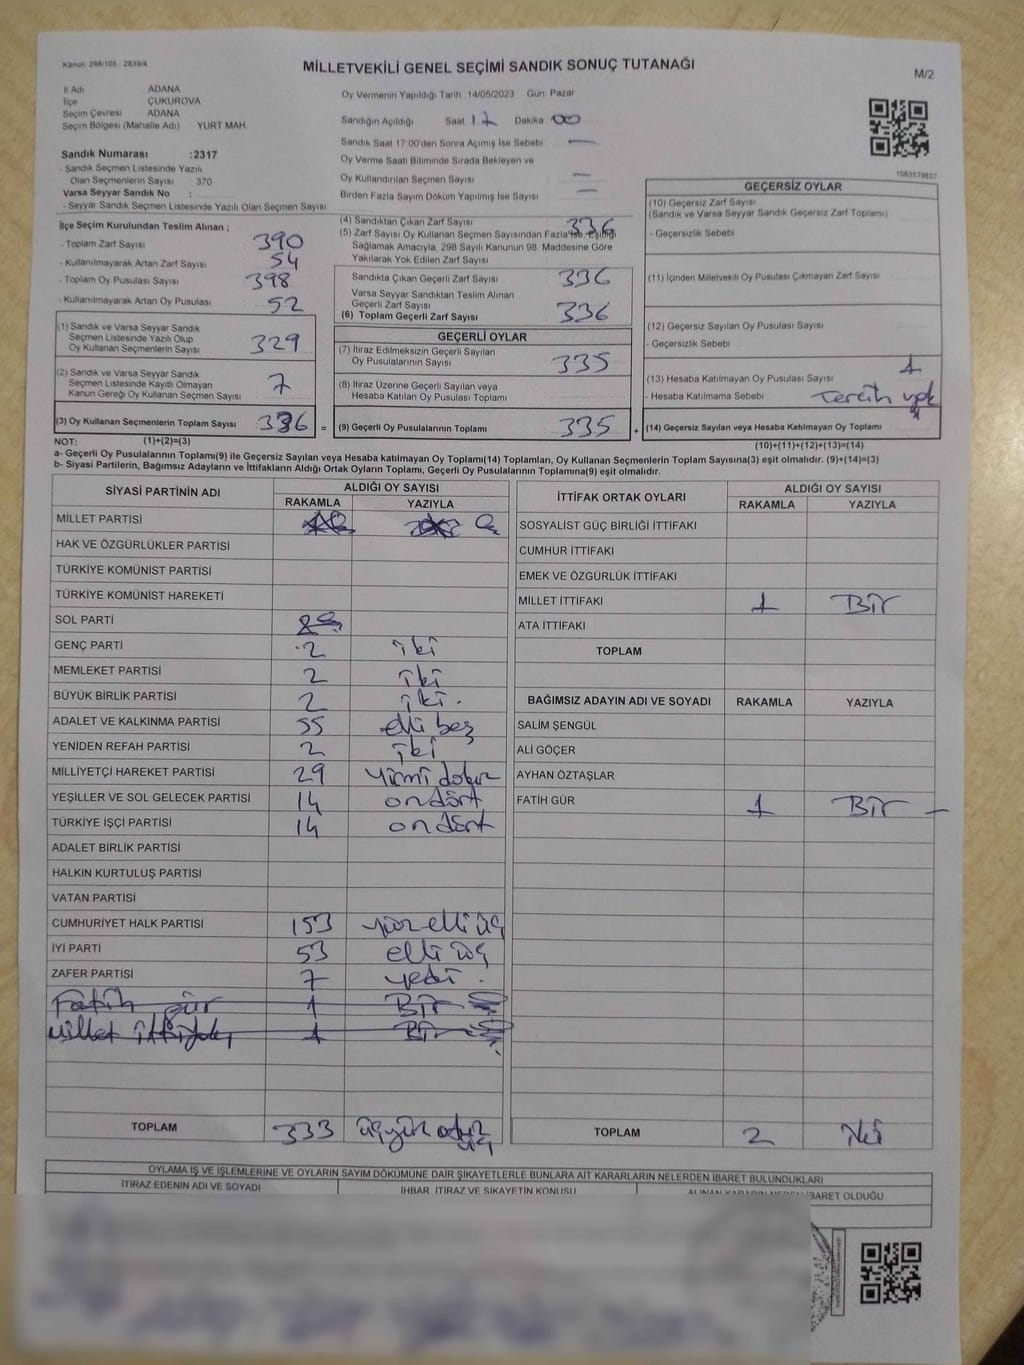 Kanun: 298/105 2839/4
MİLLETVEKİLİ GENEL SEÇİMİ SANDIK SONUÇ TUTANAĞI
M/2
İl Adı ADANA
İlçe ÇUKUROVA
Seçim Çevresi ADANA
Seçim Bölgesi (Mahalle Adı) YURT MAH.
Sandık Numarası :2317
- Sandık Seçmen Listesinde Yazılı
Olan Seçmenlerin Sayısı 370
Varsa Seyyar Sandık No :
- Seyyar Sandık Seçmen Listesinde Yazılı Olan Seçmen Sayısı
Oy Vermenin Yapıldığı Tarih :14/05/2023 Gün: Pazar
Sandığın Açıldığı Saat 17 Dakika 00
Sandık Saat 17:00'den Sonra Açılmış İse Sebebi —
Oy Verme Saati Bitiminde Sırada Bekleyen ve
Oy Kullandırılan Seçmen Sayısı —
Birden Fazla Sayım Döküm Yapılmış İse Sayısı —
1083579837
İlçe Seçim Kurulundan Teslim Alınan ;
- Toplam Zarf Sayısı 390
- Kullanılmayarak Artan Zarf Sayısı 54
- Toplam Oy Pusulası Sayısı 398
- Kullanılmayarak Artan Oy Pusulası 52
(1) Sandık ve Varsa Seyyar Sandık
Seçmen Listesinde Yazılı Olup
Oy Kullanan Seçmenlerin Sayısı 329
(2) Sandık ve Varsa Seyyar Sandık
Seçmen Listesinde Kayıtlı Olmayan
Kanun Gereği Oy Kullanan Seçmen Sayısı 7
(3) Oy Kullanan Seçmenlerin Toplam Sayısı 336 =
(4) Sandıktan Çıkan Zarf Sayısı 336
(5) Zarf Sayısı Oy Kullanan Seçmen Sayısından Fazla İse, Eşitliği
Sağlamak Amacıyla, 298 Sayılı Kanunun 98. Maddesine Göre
Yakılarak Yok Edilen Zarf Sayısı
Sandıkta Çıkan Geçerli Zarf Sayısı 336
Varsa Seyyar Sandıktan Teslim Alınan
Geçerli Zarf Sayısı
(6) Toplam Geçerli Zarf Sayısı 336
GEÇERLİ OYLAR
(7) İtiraz Edilmeksizin Geçerli Sayılan
Oy Pusulalarının Sayısı 335
(8) İtiraz Üzerine Geçerli Sayılan veya
Hesaba Katılan Oy Pusulası Toplamı
(9) Geçerli Oy Pusulalarının Toplamı 335 +
GEÇERSİZ OYLAR
(10) Geçersiz Zarf Sayısı
(Sandık ve Varsa Seyyar Sandık Geçersiz Zarf Toplamı)
- Geçersizlik Sebebi
(11) İçinden Milletvekili Oy Pusulası Çıkmayan Zarf Sayısı
(12) Geçersiz Sayılan Oy Pusulası Sayısı
- Geçersizlik Sebebi
(13) Hesaba Katılmayan Oy Pusulası Sayısı 1
- Hesaba Katılmama Sebebi Tercih yok
(14) Geçersiz Sayılan veya Hesaba Katılmayan Oy Toplamı 1
NOT: (1)+(2)=(3) (10)+(11)+(12)+(13)=(14)
a- Geçerli Oy Pusulalarının Toplamı(9) ile Geçersiz Sayılan veya Hesaba Katılmayan Oy Toplamı(14) Toplamları, Oy Kullanan Seçmenlerin Toplam Sayısına(3) eşit olmalıdır. (9)+(14)=(3)
b- Siyasi Partilerin, Bağımsız Adayların ve İttifakların Aldığı Ortak Oyların Toplamı, Geçerli Oy Pusulalarının Toplamına(9) eşit olmalıdır.
SİYASİ PARTİNİN ADI ALDIĞI OY SAYISI
RAKAMLA YAZIYLA
MİLLET PARTİSİ
HAK VE ÖZGÜRLÜKLER PARTİSİ
TÜRKİYE KOMÜNİST PARTİSİ
TÜRKİYE KOMÜNİST HAREKETİ
SOL PARTİ
GENÇ PARTİ 2 iki
MEMLEKET PARTİSİ 2 iki
BÜYÜK BİRLİK PARTİSİ 2 iki.
ADALET VE KALKINMA PARTİSİ 55 elli beş
YENİDEN REFAH PARTİSİ 2 iki
MİLLİYETÇİ HAREKET PARTİSİ 29 yirmi dokuz
YEŞİLLER VE SOL GELECEK PARTİSİ 14 ondört
TÜRKİYE İŞÇİ PARTİSİ 14 ondört
ADALET BİRLİK PARTİSİ
HALKIN KURTULUŞ PARTİSİ
VATAN PARTİSİ
CUMHURİYET HALK PARTİSİ 153 yüz elli üç
İYİ PARTİ 53 elli üç
ZAFER PARTİSİ 7 yedi.
Fatih gür 1 BİR
Millet ittifakı 1 BİR
TOPLAM 333 üçyüz otuz üç
İTTİFAK ORTAK OYLARI ALDIĞI OY SAYISI
RAKAMLA YAZIYLA
SOSYALİST GÜÇ BİRLİĞİ İTTİFAKI
CUMHUR İTTİFAKI
EMEK VE ÖZGÜRLÜK İTTİFAKI
MİLLET İTTİFAKI 1 BİR
ATA İTTİFAKI
TOPLAM
BAĞIMSIZ ADAYIN ADI VE SOYADI RAKAMLA YAZIYLA
SALİM ŞENGÜL
ALİ GÖÇER
AYHAN ÖZTAŞLAR
FATİH GÜR 1 BİR —
TOPLAM 2 iki
OYLAMA İŞ VE İŞLEMLERİNE VE OYLARIN SAYIM DÖKÜMÜNE DAİR ŞİKAYETLERLE BUNLARA AİT KARARLARIN NELERDEN İBARET BULUNDUKLARI
İTİRAZ EDENİN ADI VE SOYADI İHBAR, İTİRAZ VE ŞİKAYETİN KONUSU ALINAN KARARIN NEDEN İBARET OLDUĞU